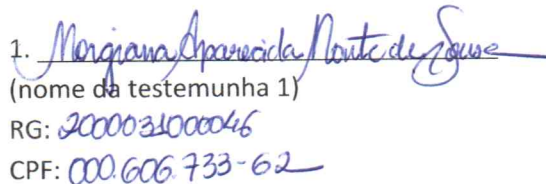 1. Morgiana Aparecida Monte de Sousa
(nome da testemunha 1)
RG: 2000031000046
CPF: 000.606.733-62